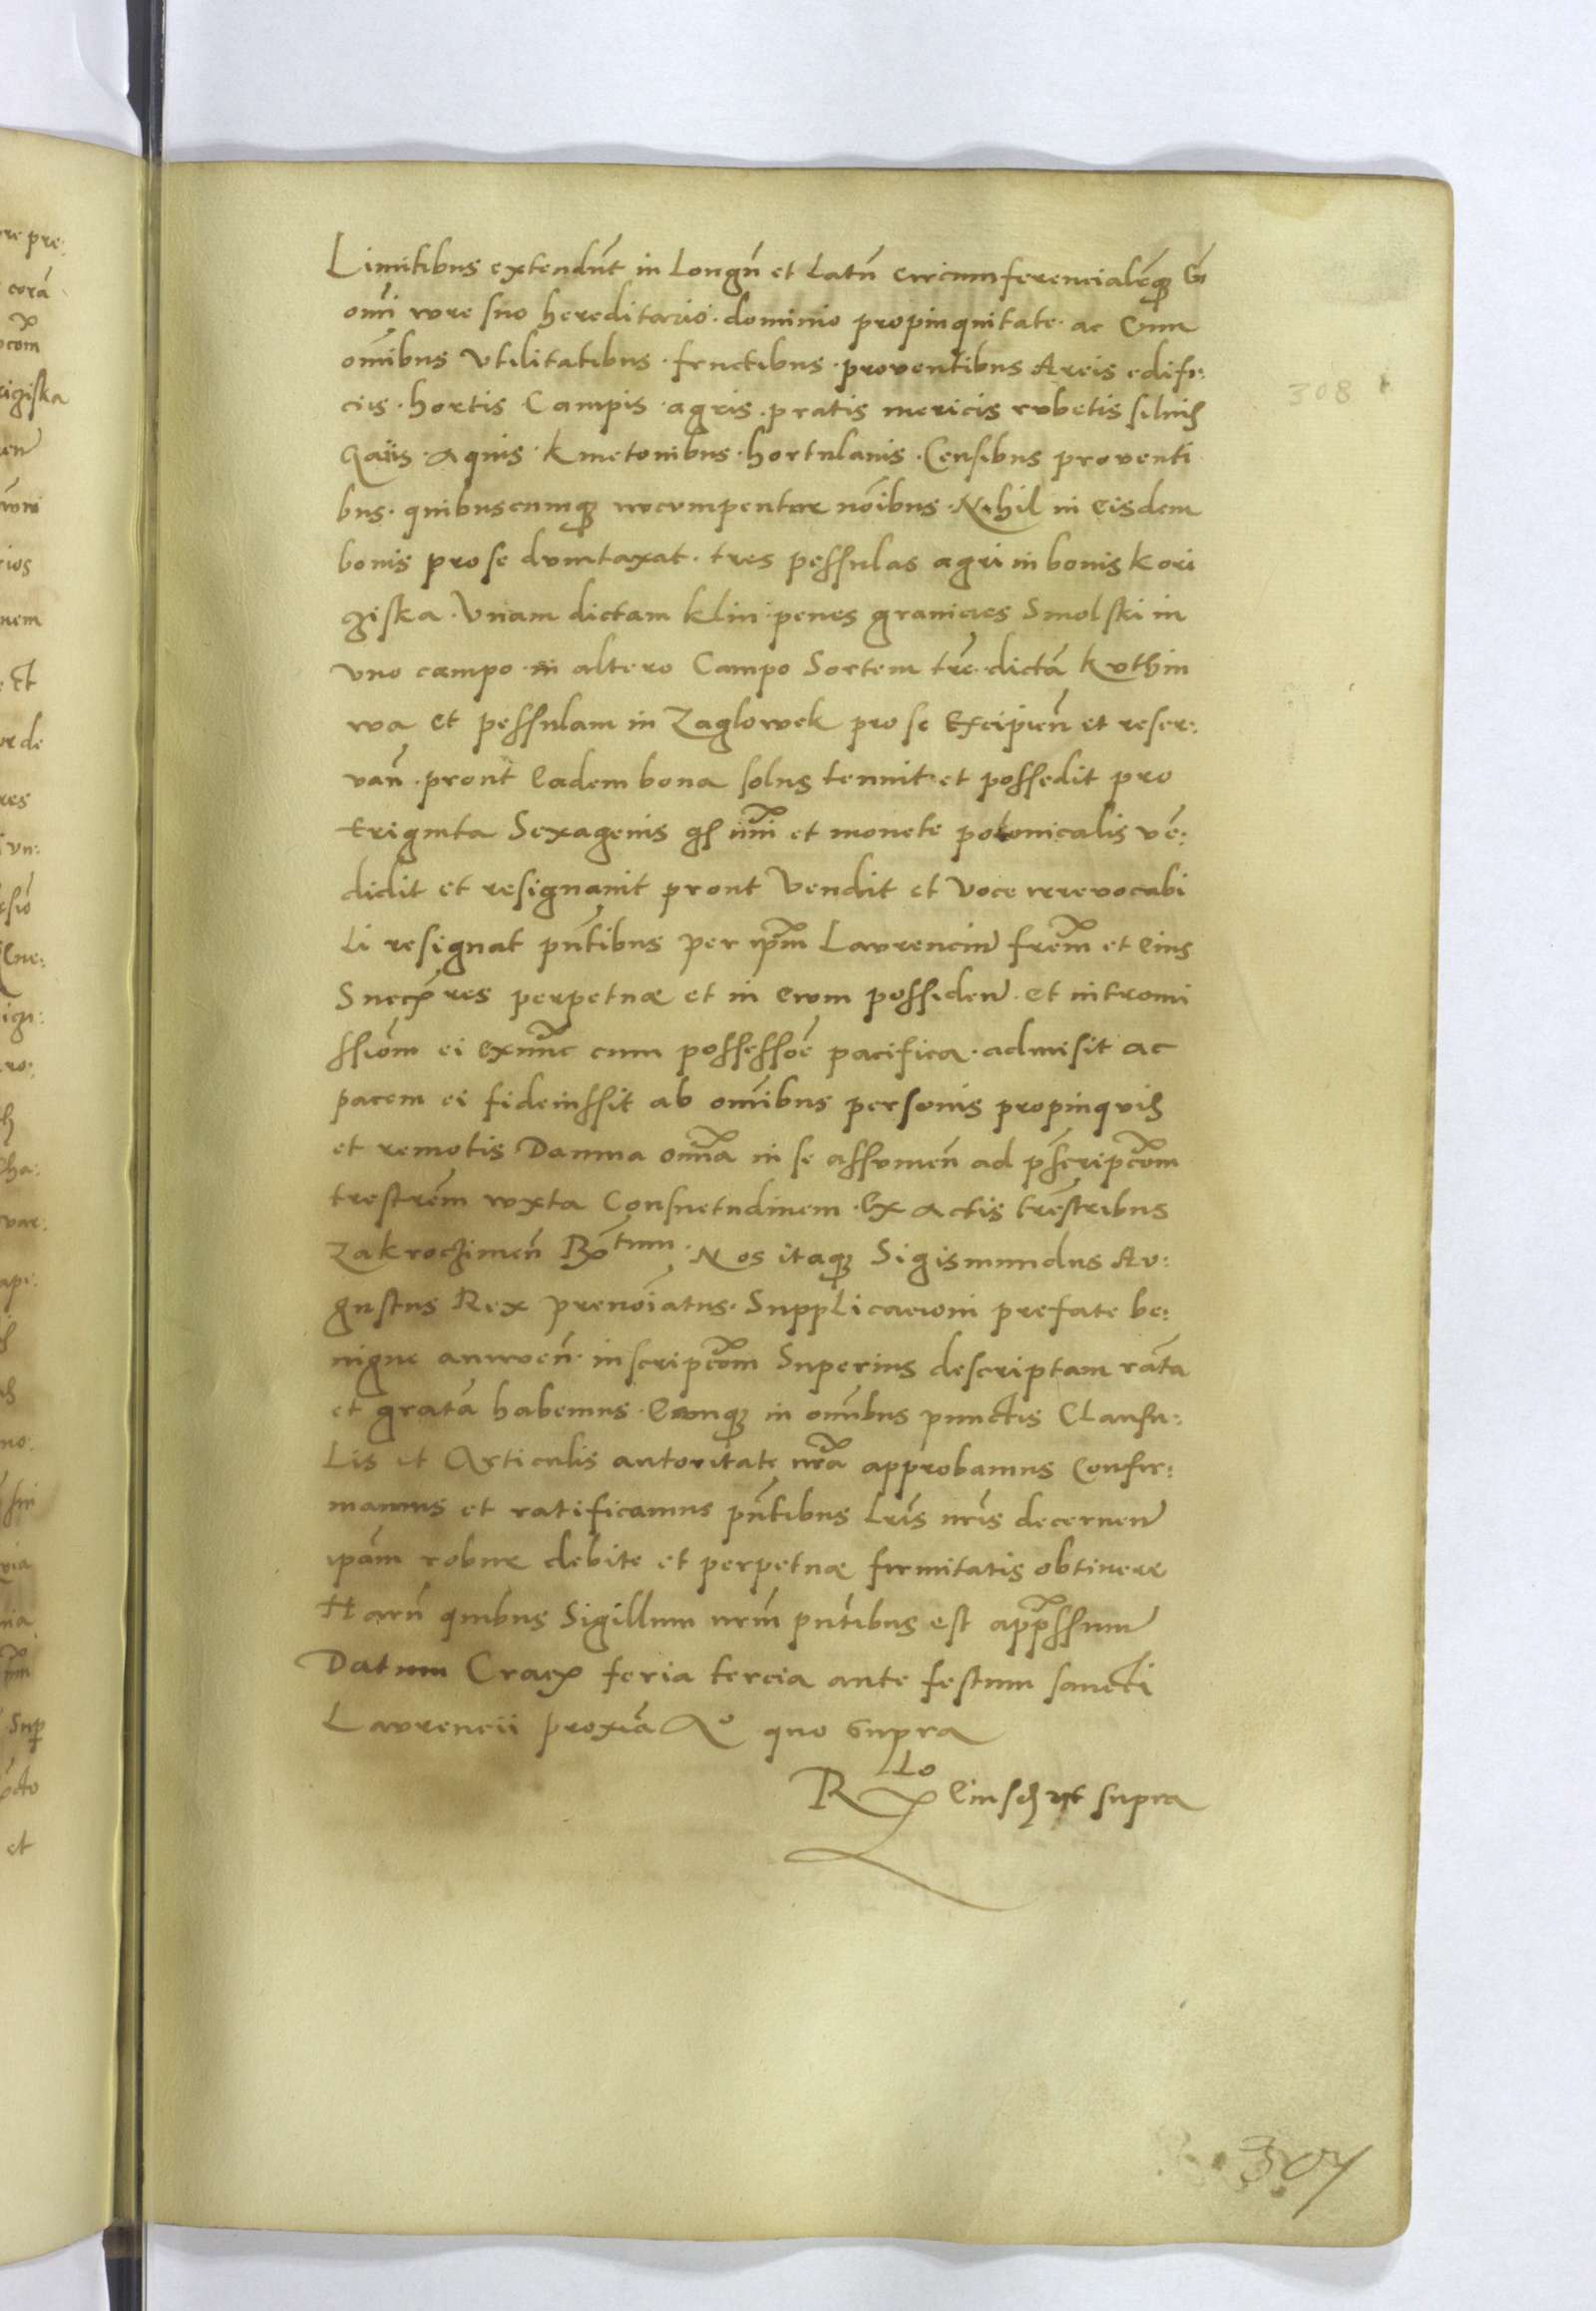 Limitibus extendūt in longū et latū circumferencialēqꝫ
omī iure suo hereditario · dominio propinquitate · ac cum
om̄ibus vtilitatibus · fructibus · proventibus Areis edifi:
ciis · hortis Campis · agris · pratis mericis rubetis siluis
Gaiis · Aquis · kmetonibus · hortulanis · Censibus proventi
bus · quibuscumqꝫ nōibus · Nihil in eisdem
bonis pro se dumtaxat · tres pessulas agri in bonis kori
ziska · Vnam dictam klin · penes granicies Smolski in
vno campo in altero Campo Sortem trē dictā kuthin
wa et pessulam in Zaglowek pro se Excipien̄ et reser:
van̄ · prout eadem bona solus tenuit et possedit pro
triginta Sexagenis et monete polonicalis vē:
didit et resignauit prout vendit et voce irrevocabi
li resignat pn̄tibus per ip̄m Laurenciu frem et eius
Succres perpetuæ et in evum possiden · et intromi
ssiōm ei exnunc cum possessiōe pacifica · admisit ac
pacem ei fideiussit ab om̄ibus personis propinquis
et remotis Damna omnia in se assumen̄ ad pscripcōm
trestrēm iuxta Consuetudinem · Ex actis trēstribus
Zakroczimen̄ Rtum · Nos itaqꝫ Sigismundus Au:
gustus Rex prenoiatus · Supplicacioni prefate be:
nigne annuen̄ · inscripcōm Superius descriptam ratā
et gratā habemus · Eamqꝫ in omībus punctis Clausu:
lis et Articulis autoritate nrā approbamus Confir:
mamus et ratificamus pn̄tibus Lris nris decernen
ipām robur debite et perpetuæ firmitatis obtinere
Harū quibus Sigillum nrm pn̄tibus est appssum
Datum Crac feria tercia ante festum sancti
Laurencii proxiā Ao quo supra
Rlo eiusdꝫ vt supra
308
307